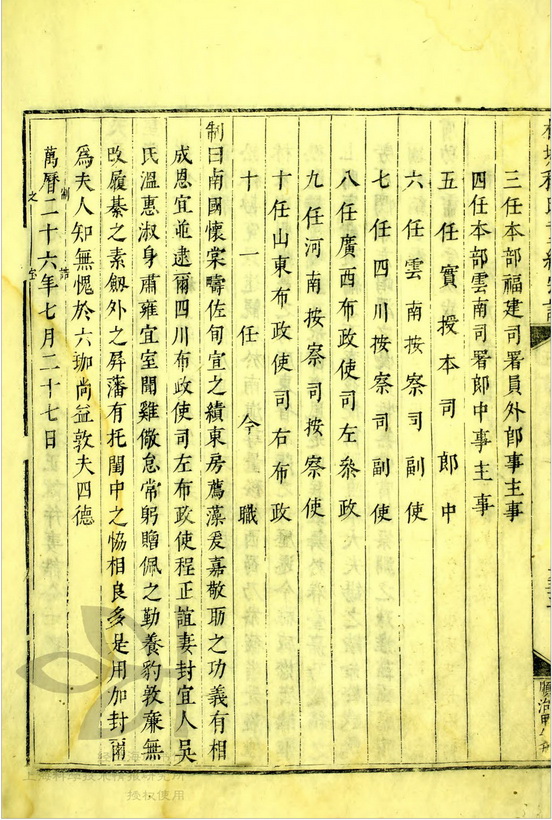 三任本部福建司署員外郎事主事
四任本部雲南司署郎中事主事
五任實授本司郎中
六任雲南按察司副使
七任四川按察司副使
八任廣西布政使司左叅政
九任河南按察司按察使
十任山東布政使司右布政
十一任今職
制曰南國懷棠疇佐旬宣之績東房薦藻爰嘉敬之功義有相
成恩宜並逮爾四川布政使司左布政使程正誼妻封宜人吳
氏溫惠淑身肅雍宜室聞雞儆怠常躬贈佩之勤養豹敦廉無
改履綦之素劔外之屏藩有托閨中之恊相良多是用加封爾
爲夫人知無愧於六珈尚益敦夫四德
萬曆二十六年七月二十七日
制誥
之寶
授权使用